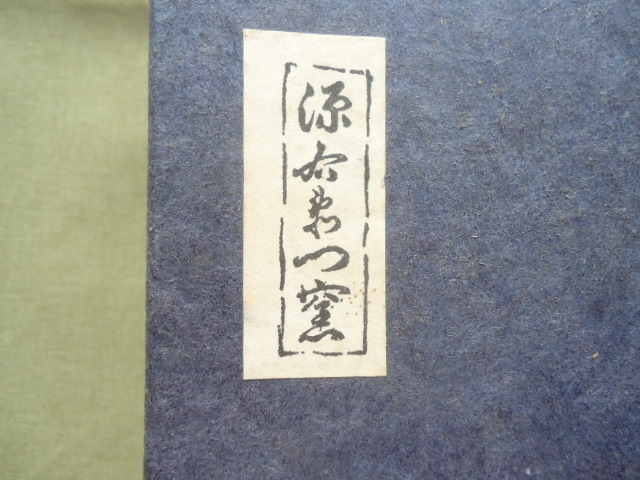 源右衛門窯